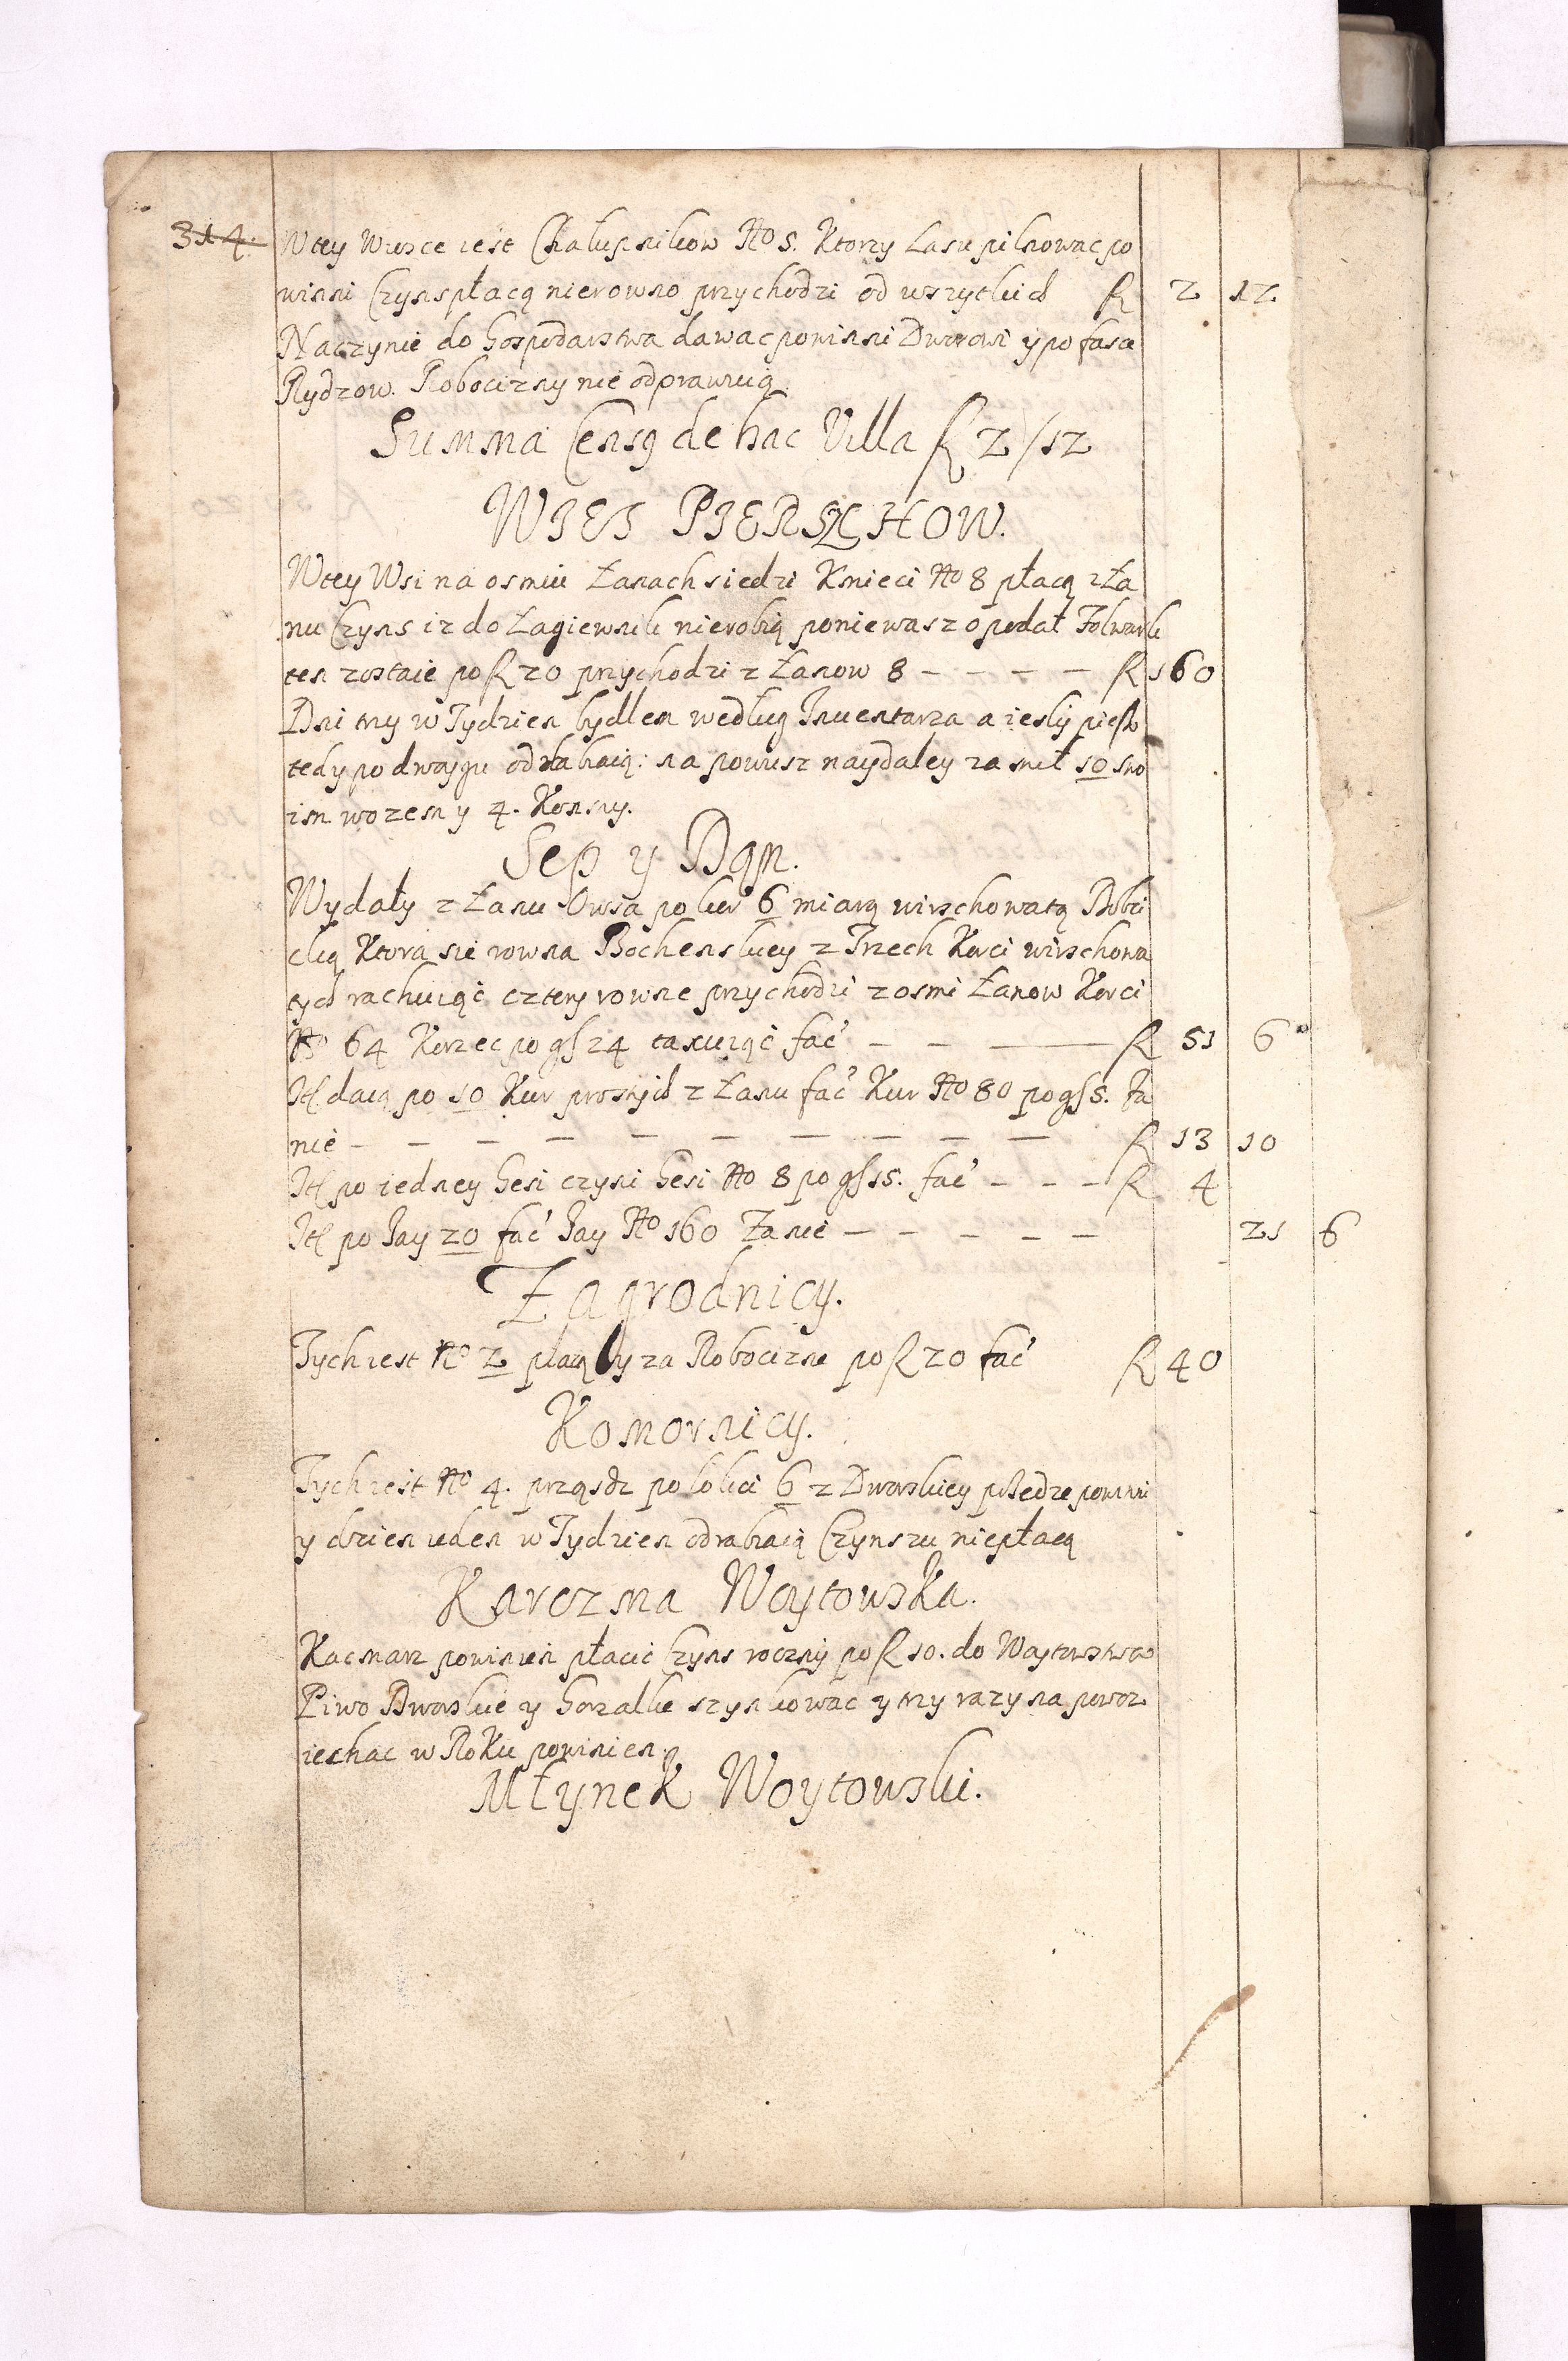 314.
W tey Wiosce iest Chałupnikow No 5. Ktorzy Lasu pilnowac po
winni Czynsz płacą nierowno przychodzi od wszytkich fl 2 12
Naczynie do Gospodarstwa dawac powinni Dworowi y po fasce
Rydzow. Robocizny nie odprawuią
Summa Censg de hac Villa fl 2/12
WIES PIERSZCHOW.
W tey Wsi na osmiu Łanach siedzi Kmieci No 8 płacą z Ła
nu Czynsz iz do Łagiewnik nierobią poniewasz opodal Folwark
ten zostaie po fl 20 przychodzi z Łanow 8 — — — — fl 160
Dni trzy w Tydzien bydłem według Inuentarza a iesly pieszo
tedy po dwoygu odrabiaią: na powusz naydaley za mil 10 swo
im wozem y 4. Konmy.
Sep y Dan.
Wydały z Łanu Owsa po kor 6 miarą wirzchowatą Bobre
cką Ktora sie rowna Bochenskiey z Trzech Korcy wirzchowa
tych rachuiąc cztery rowne przychodzi z osmi Łanow Korcy
No 64 Korzec po gr 24 taxuiąc fac — — — fl 51 6
It daią po 10 Kur prostych z Łanu fac Kur No 80 po gr 5. Ta
nie — — — — — — — — — fl 13 10
It po iedney Gesi czyni Gesi No 8 po gr 15. fac — — — fl 4
It po Jay 20 fac Jay No 160 Tanie — — — — — 21 6
Zagrodnicy.
Tych iest No 2 płacą by za Robocizne po fl 20 fac fl 40
Komornicy.
Tych iest No 4. prząsdz po łokci 6 z Dworskiey przedze powinni
y dzien ieden w Tydzien odrabiaią Czynszu niepłacą
Karczma Woytowska.
Kacmarz powinien płacic Czynsz roczny po fl 10. do Woytowstwa
Piwo Dworskie y Gorzałke szynkowac y trzy razy na powoz
iechac w Roku powinien.
Młynek Woytowski.